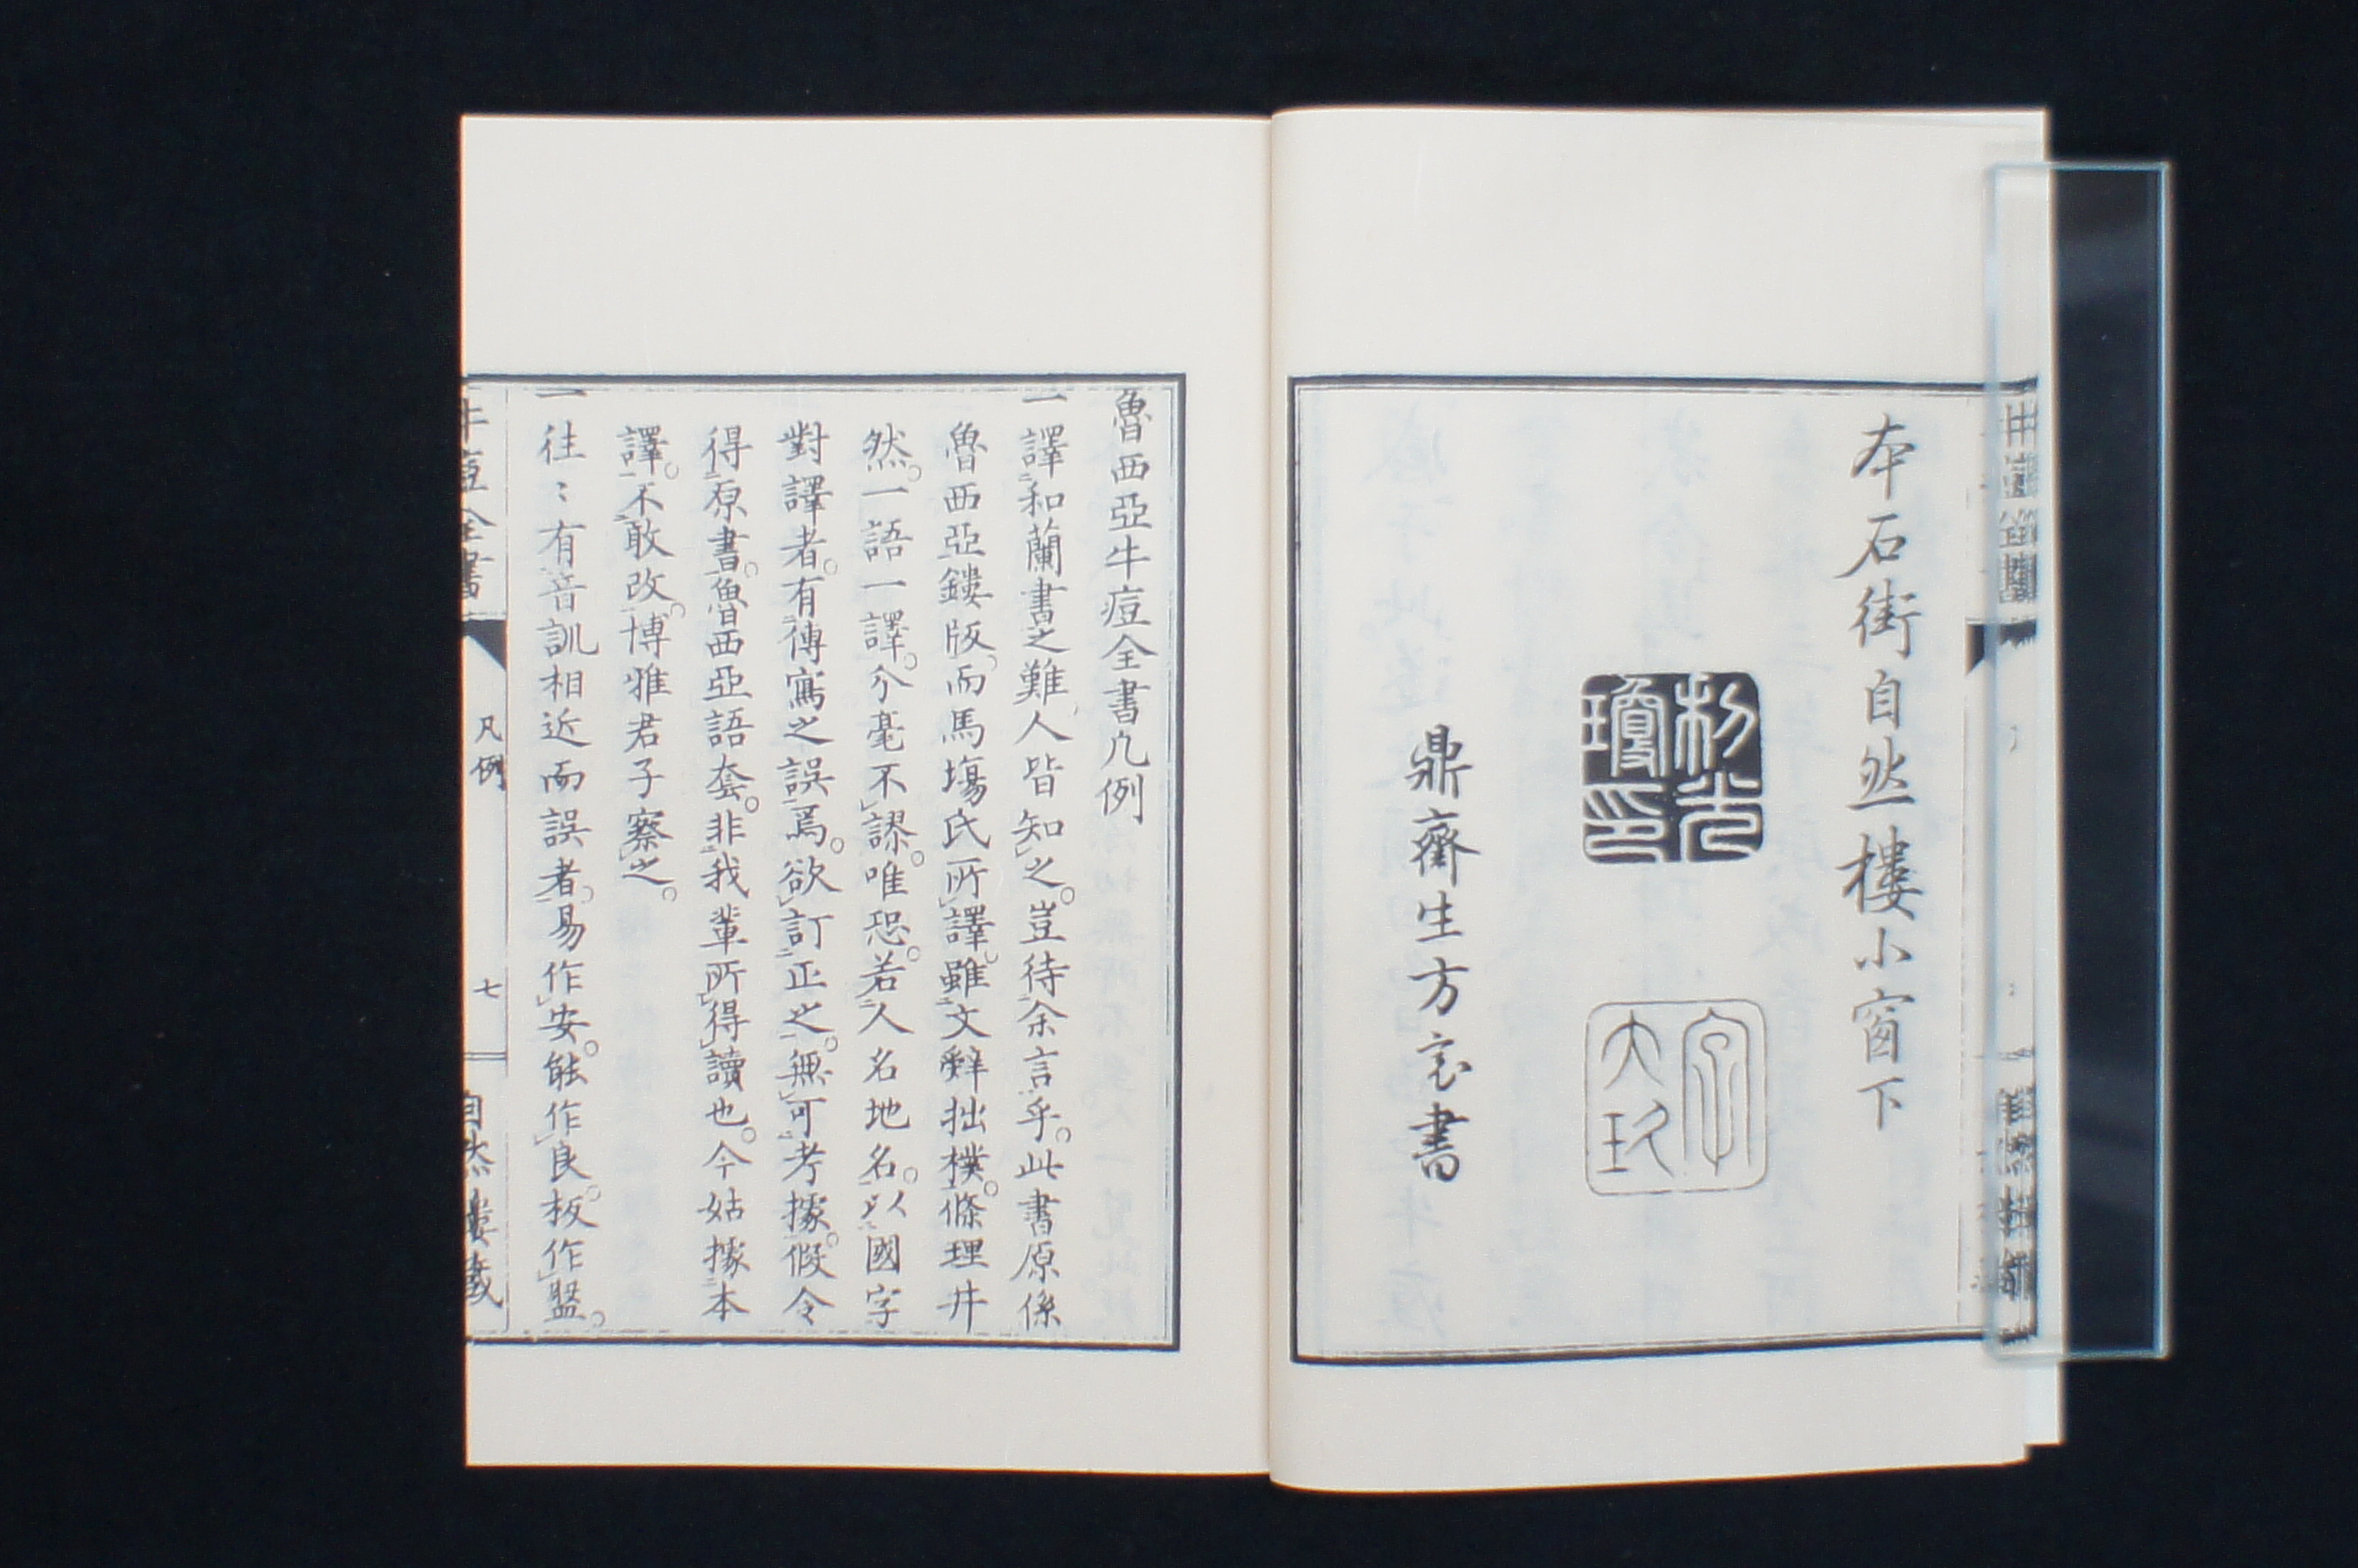 本石街自然樓小窗下
鼎齋生方寛書
魯西亞牛痘全書凡例
一譯和蘭書之難人皆知之。豈待余言乎。此書原係
魯西亞鏤版而馬塲氏所譯。雖文辭拙樸。條理井
然。一語一譯。分毫不謬。唯恐。若人名地名。以國字
對譯者。有傳寫之誤焉。欲訂正之。無可考據。假令
得原書。魯西亞語套。非我輩所得讀也。今姑據本
譯。不敢改。博雅君子察之。
一往〻有音訓相近而誤者。易作安。能作良。板作盤。
牛痘全書
凡例
七
自然樓藏